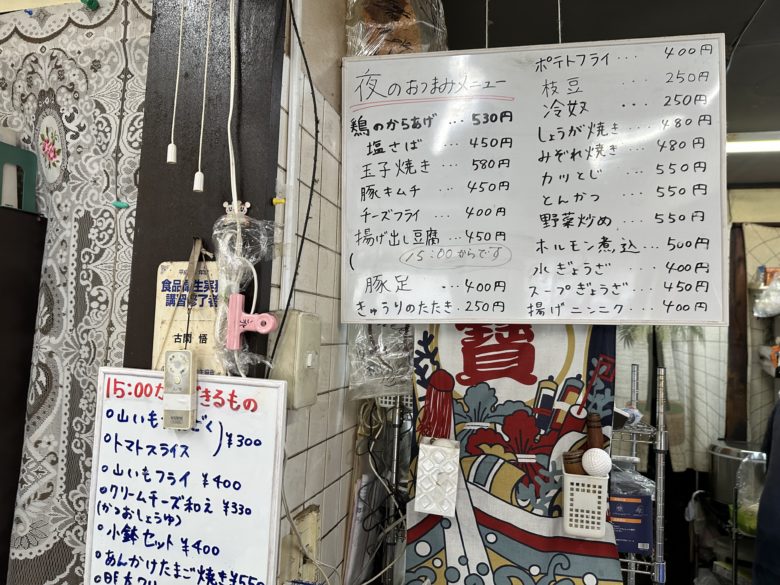 夜のおつまみメニュー
鶏のからあげ … 530円
塩さば … 450円
玉子焼き … 580円
豚キムチ … 450円
チーズフライ … 400円
揚げ出し豆腐 … 450円
( 15:00からです
豚足 … 400円
きゅうりのたたき. 250円
ポテトフライ … 400円
枝豆 250円
冷奴 … 250円
しょうが焼き … 480円
みぞれ焼き … 480円
カツとじ … 550円
とんかつ … 550円
野菜炒め … 550円
ホルモン煮込 … 500円
水ぎょうざ … 400円
スープぎょうざ … 450円
揚げニンニク … 400円
食品衛生実
講習修了者
古関 悟
寶
15:00か できるもの
○山いも
○トマトスライス ¥300
○山いもフライ ¥400
○クリームチーズ和え ¥330
(かつおしょうゆ)
○小鉢セット ¥400
○あんかけたまご焼き ¥550